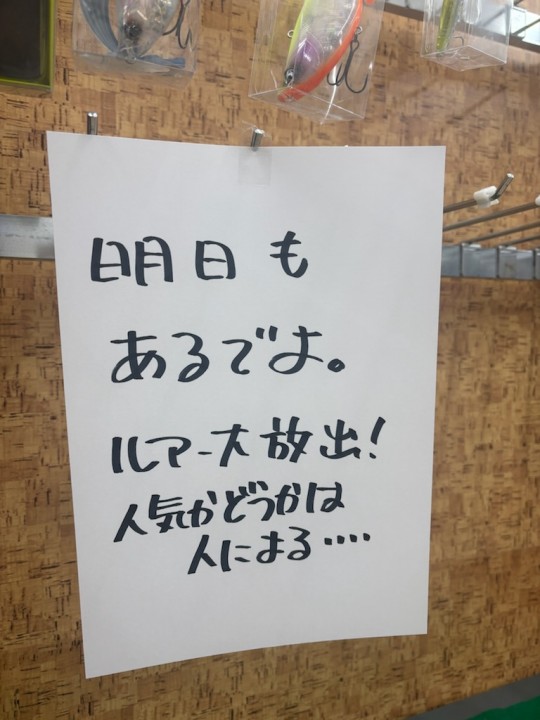 明日も
あるでよ。
ルアー大放出!
人気かどうかは
人による····